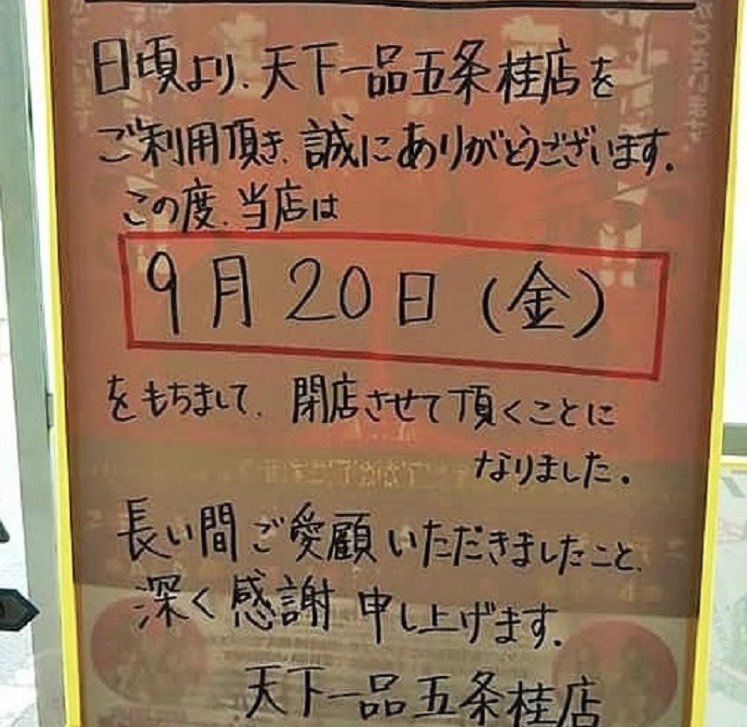 日頃より、天下一品五条桂店を
ご利用頂き、誠にありがとうございます。
この度、当店は
9月20日(金)
をもちまして、閉店させて頂くことに
なりました。
長い間ご愛顧いただきましたこと、
深く感謝申し上げます。
天下一品五条桂店